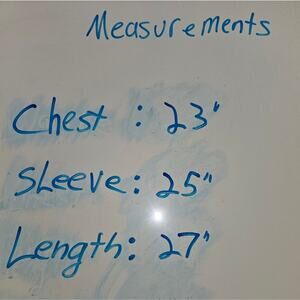 Measurements
Chest : 23"
SLeeve: 25"
Length: 27"